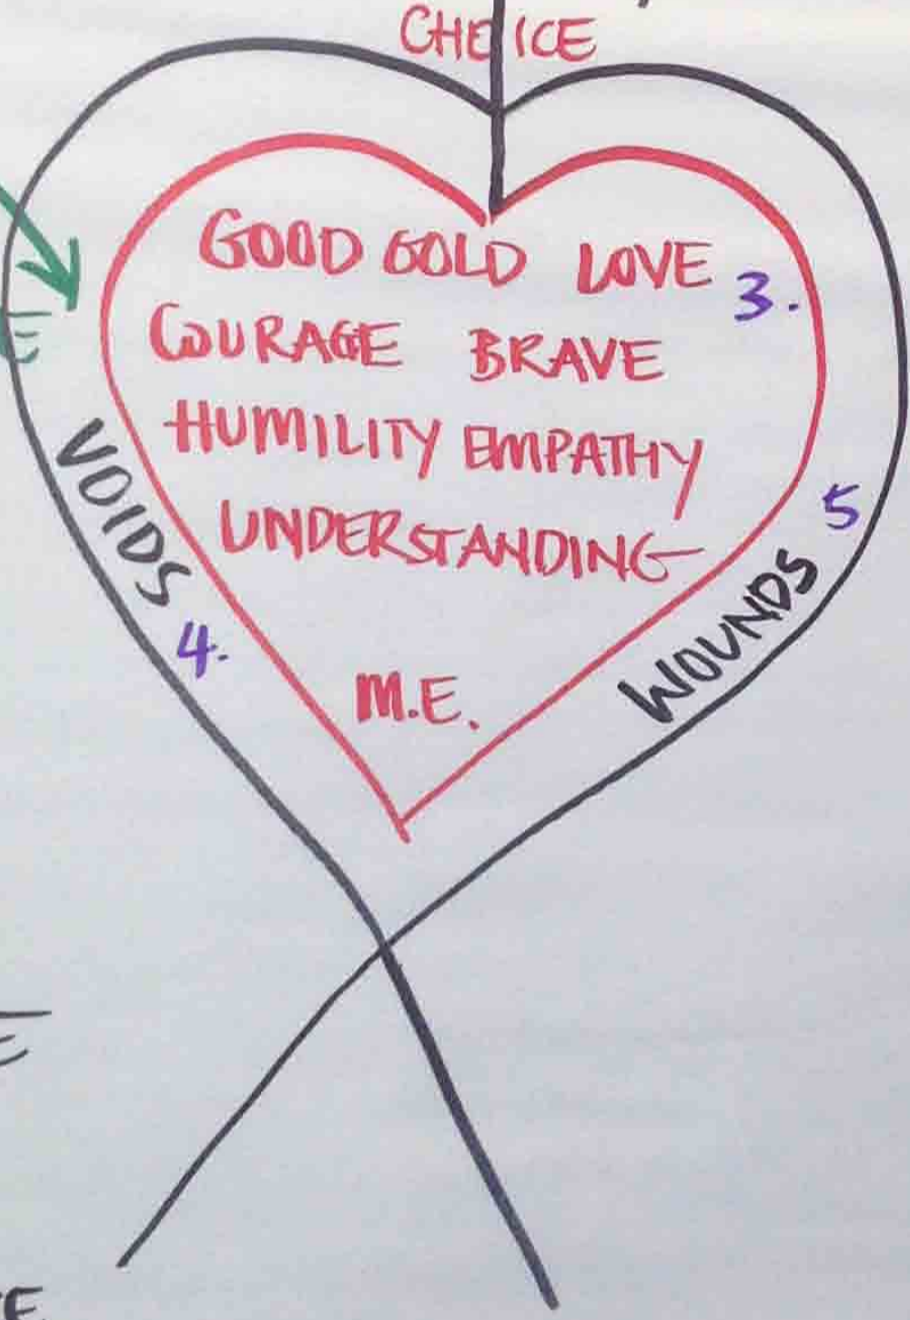 CHOICE
GOOD GOLD LOVE
3.
COURAGE BRAVE
HUMILITY EMPATHY
UNDERSTANDING
VOIDS
4.
5
WOUNDS
M.E.